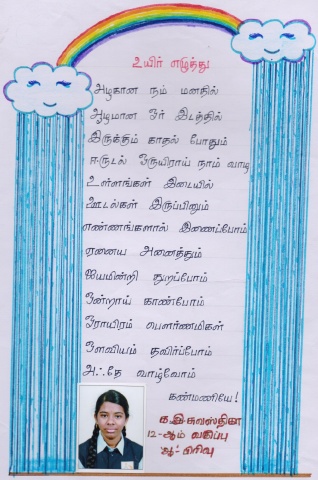 உயிர் எழுத்து
அழகான நம் மனதில்
ஆழமான ஓர் இடத்தில்
இருக்கும் காதல் போதும்
ஈருடல் ஓருயிராய் நாம் வாழ
உள்ளங்கள் இடையில்
ஊடல்கள் இருப்பினும்
எண்ணங்களால் இணைப்போம்
ஏனைய அனைத்தும்
ஐயமின்றி துறப்போம்
ஒன்றாய் காண்போம்
ஓராயிரம் பௌர்ணமிகள்
ஔவியம் தவிர்ப்போம்
அஃதே வாழ்வோம்
கண்மணியே!
க.இ.சுவஸ்திகா
12-ஆம் வகுப்பு
'ஆ'- பிரிவு